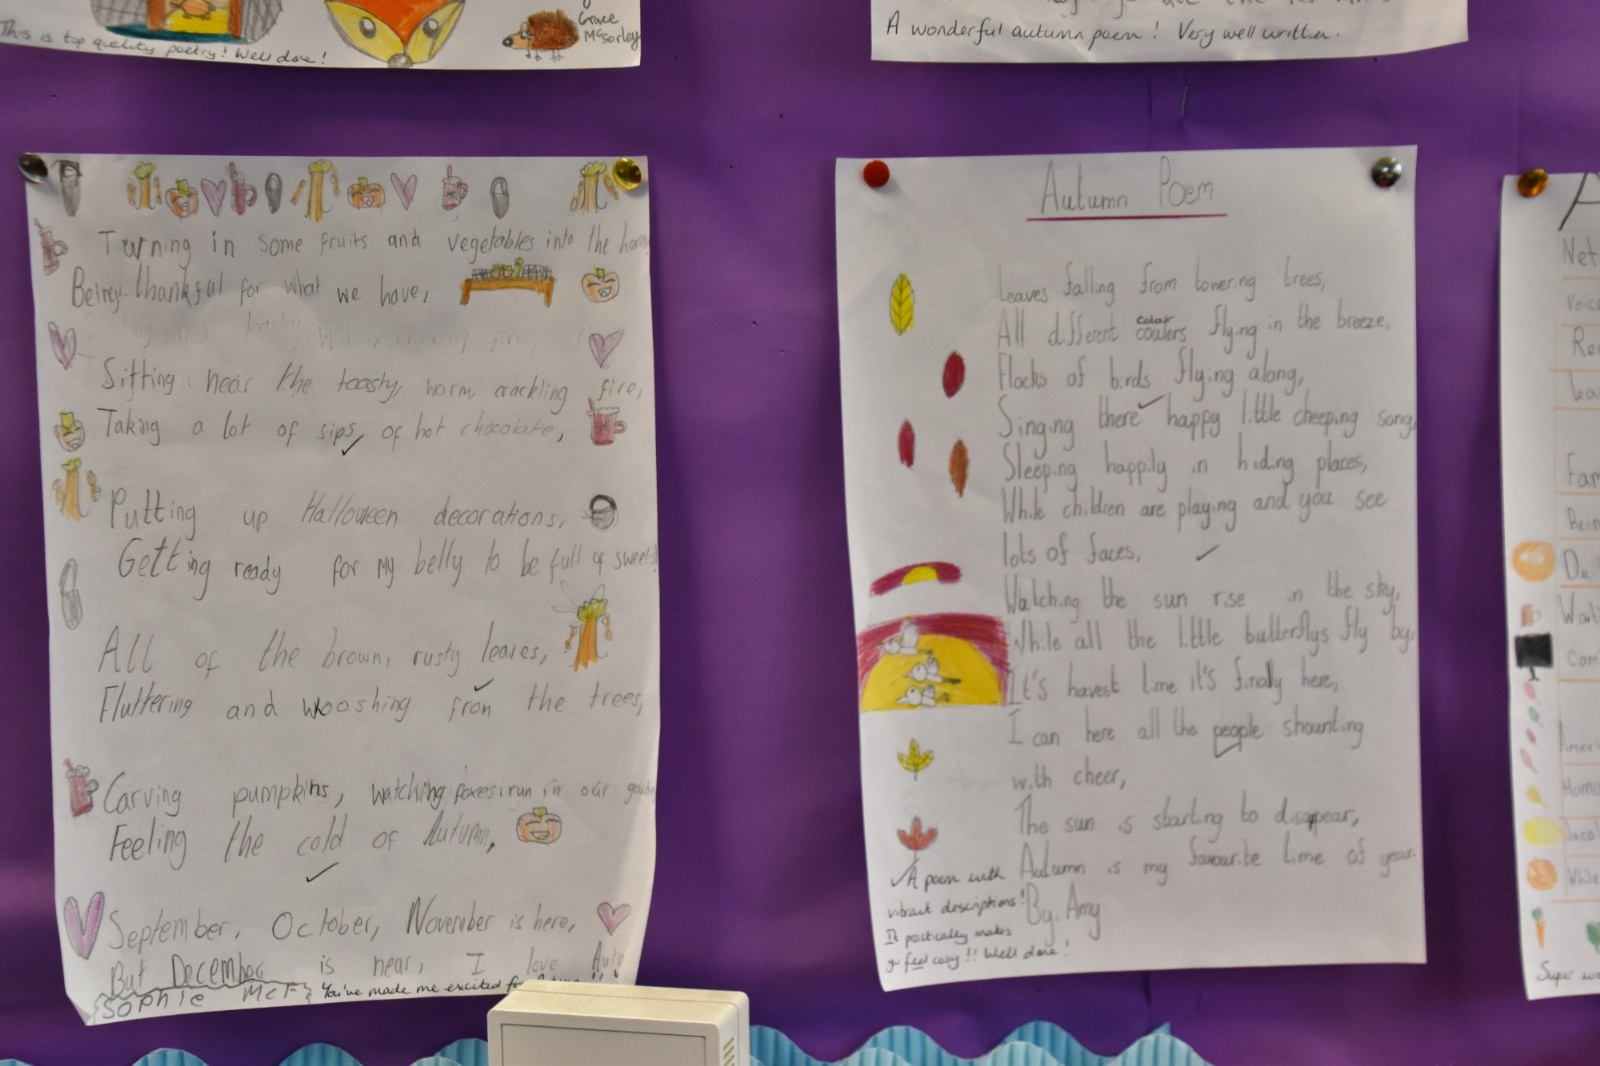 This is top quality poetry! Well done!
Grace
McSorley
A wonderful autumn poem! Very well written.
Turning in some fruits and vegetables into the
Being thankful for what we have,
Sitting near the toasty, worm, crackling fire,
Taking a lot of sips, of hot chocolate,
Putting up Halloween decorations,
Getting ready for my belly to be full of sweets!
All of the brown, rusty leaves,
Fluttering and wooshing from the trees,
Carving pumpkins, watching foxes run in our
Feeling the cold of Autumn,
September, October, November is here,
But December is near, I love
Sophie McF
You've made me excited
Autumn Poem
Leaves falling from towering trees,
All different coulers flying in the breeze,
color
Flocks of birds flying along,
Singing there happy little cheeping song,
Sleeping happily in hiding places,
While children are playing and you see
lots of faces,
Watching the sun rise in the sky,
While all the little butterflys fly by,
It's havest time it's finally here,
I can here all the people shounting
with cheer,
The sun is starting to disapear,
Autumn is my favourite time of year.
By. Amy
A poem with
vibrant descriptions!
It poetically makes
feel cosy!! Well done!
Net
Voice
Re
Fam
Bein
De
Wai
Com
While
Super